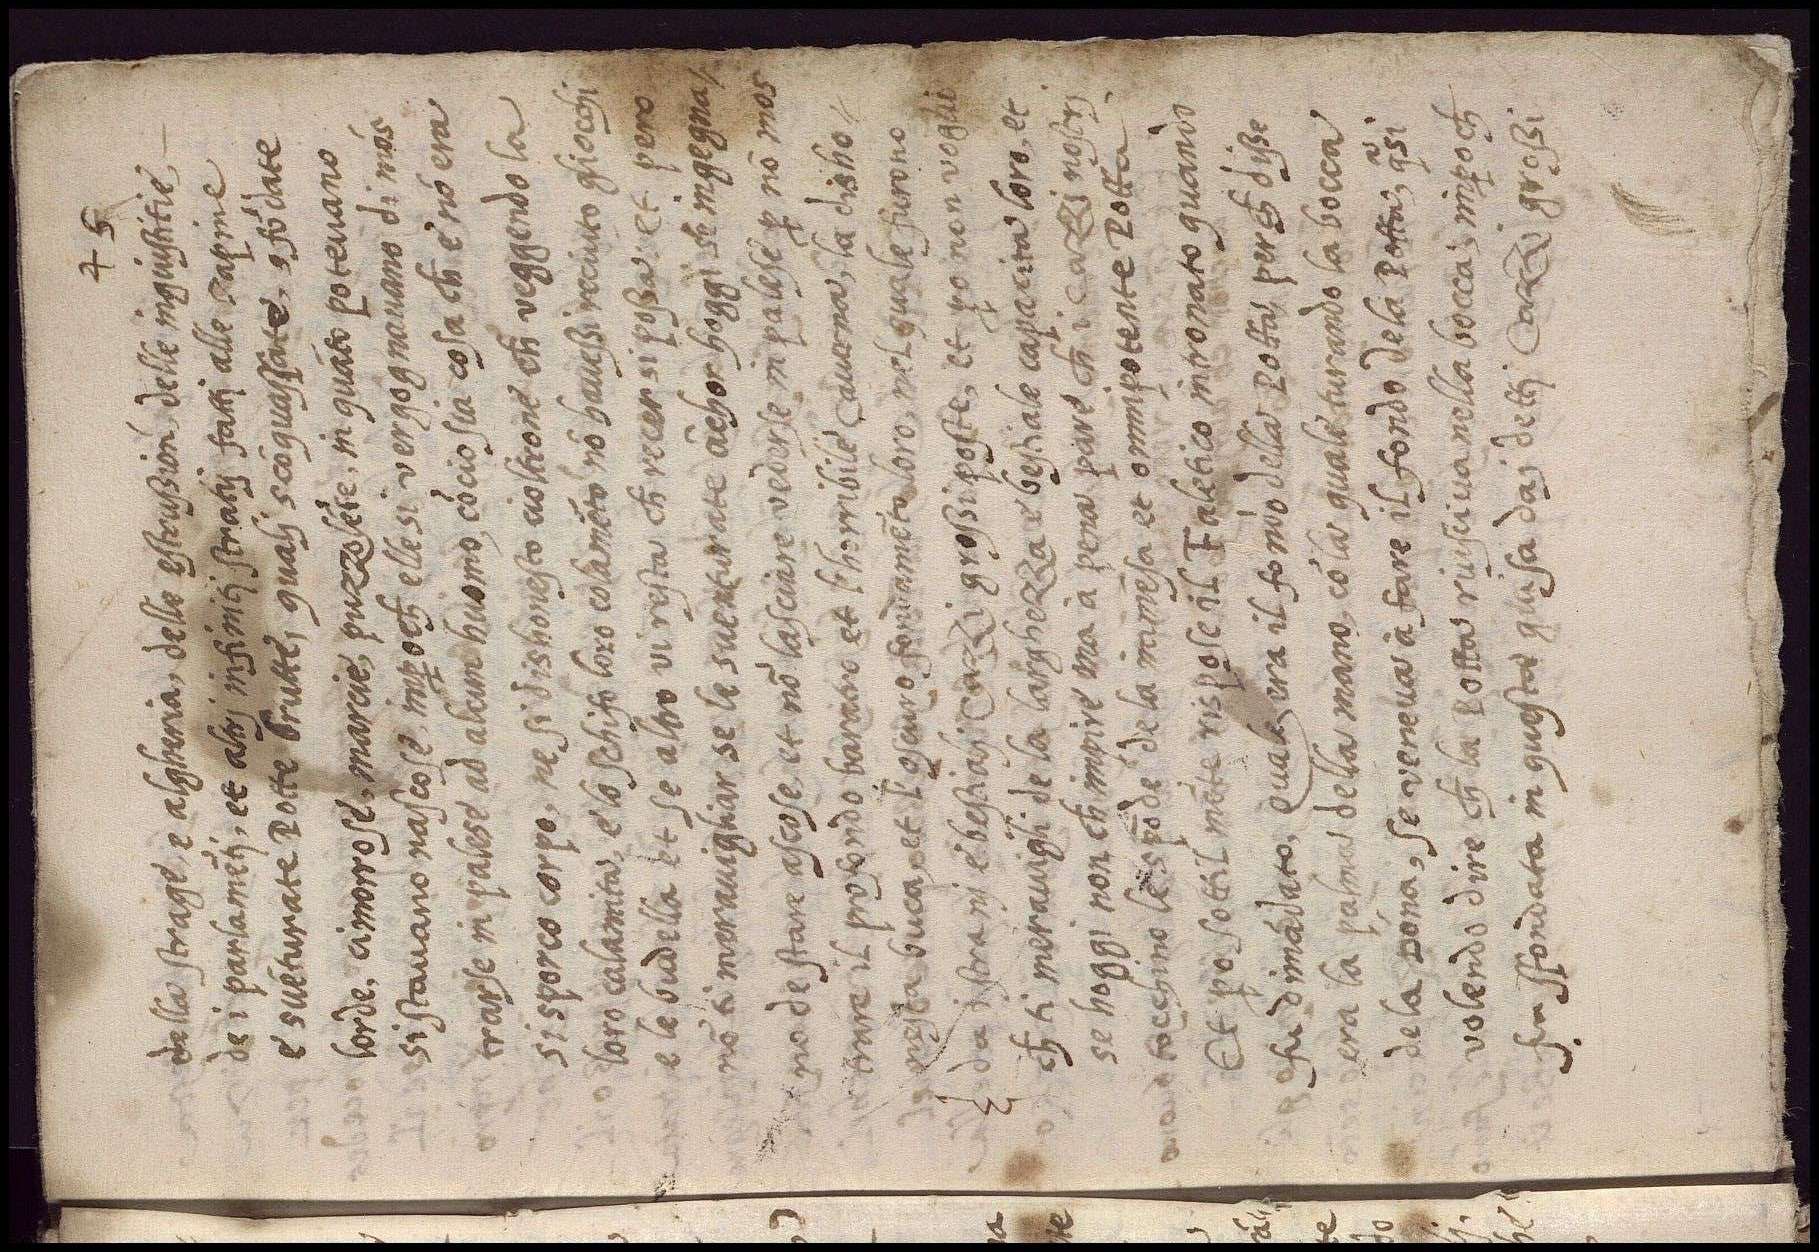 45
della strage, e alghieria, delle estrussion, delle ingiustitie,
de i parlamẽti, et altri infiniti stratij fatti alle rapine
e suẽturate Potte brutte, quali scõquassate, sfõdate
lorde, cimorrose, marcie, puzzolẽte, in quãto poteuano
si stauano nascose, impoch elle si vergognauano di mos
trarse in palese ad alcun huomo, cõcio sia cosa ch e nõ era
si sporco corpo, ne si dishonesto ciostrone ch veggendo la
loro calamita, e lo schifo loro colamẽto nõ hauessi reciuto gliocchi
e le budella et se altro vi resta ch recer si possa. et pero
nõ ti marauigliar se le suenturate ãchor hoggi se ingegna/
no de stare ascose, et nõ lasciare vederse in palese p nõ mos
trare il profondo baratro et l'horribile cauerna, la disho//
nesta buca, et l'oscuro fondamẽto loro, nel quale furono
da i strani e bestiali Cazzi grossi poste, et po non voglii
ch ti merauigli de la larghezza e bestiale capacita loro, et
se hoggi non ch impire ma à pena pare ch i cazzi nostri
tocchino le spõde de la immẽsa et omnipotente Potta.
Et po sottilmẽte rispose il Faletico intronato quando
fu dimãdato, quale era il fondo della Potta, perch disse
era la palma della mano, cõ la quale turando la bocca
de la pona, se veneua à fare il fondo de la Potta, qsi
volendo dire ch la Potta riusciua nella bocca, impoch
fu sfondata in questa guisa dai detti Cazzi grossi